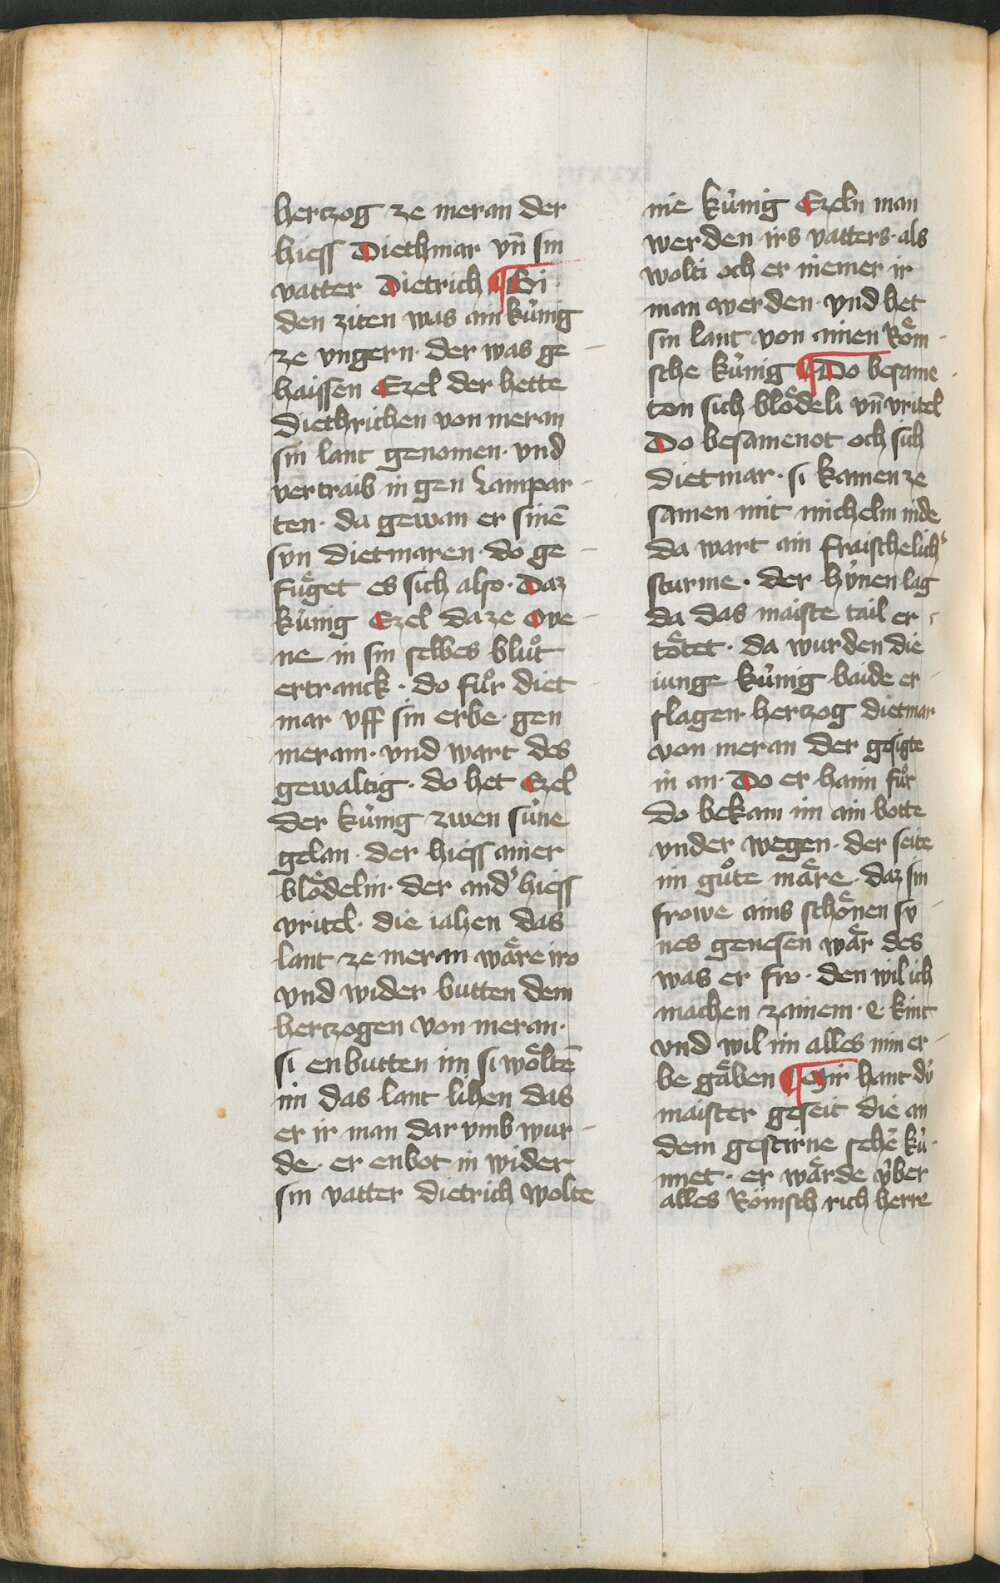 hertzog ze meran der
hiess Diethmar vn̄ sin
vatter Dietrich ¶ Bi
den ziten was ain kúnig
ze vngern · der was ge
haissen Ezel der hette
Diethrichen von meran
sin lant genomen · vnd
vertraib in gen Lampar
ten · da gewan er sinē
syn dietmaren · do ge
fuͤget es sich also · Daz
kúnig Ezel daze Ove
ne in sin selbes bluͦt
ertranck · do fuͦr diet
mar vff sin erbe · gen
meram · vnd wart des
gewaltig · do het Ezel
der kúnig zwen súne
gelan · der hiess ainer
bloͤdelin · der and' hiess
vritel · die iahen das
lant ze meran waͤre iro
vnd wider butten dem
hertzogen von meran ·
si enbutten im si woͤltē
im das lant lihen das
er ir man dar vmb wur
de · er enbot in wider
sin vatter dietrich wolte
nie kúnig Ezeln man
werden irs vatters · als
wolti och er niemer ir
man werden · vnd het
sin lant von ainen Roͤm
sche kúnig ¶ Do besame
ton sich bloͤdeli vn̄ vritel
Do besamenot och sich
dietmar · si kamen ze
samen mit michelm nide
da wart ain fraischelich'
sturme · der hýnen lag
da das maiste tail er
toͤtet · da wurden die
iunge kúnig baide er
slagen hertzog dietmar
von meran der gesigte
in an · Do er haim fuͦr
do bekam im ain botte
vnder wegen · der seite
im guͦte maͤre · daz sin
frowe ains schoͤnen sv
nes genesen waͤr des
was er fro · den wil ich
machen zainem · e · kint
vnd wil im alles min er
be gaͤben ¶ Wir hant dú
maister geseit die an
dem gestirne sehē kú
nnet · er waͤrde v́ber
alles Roͤmsch rich herre